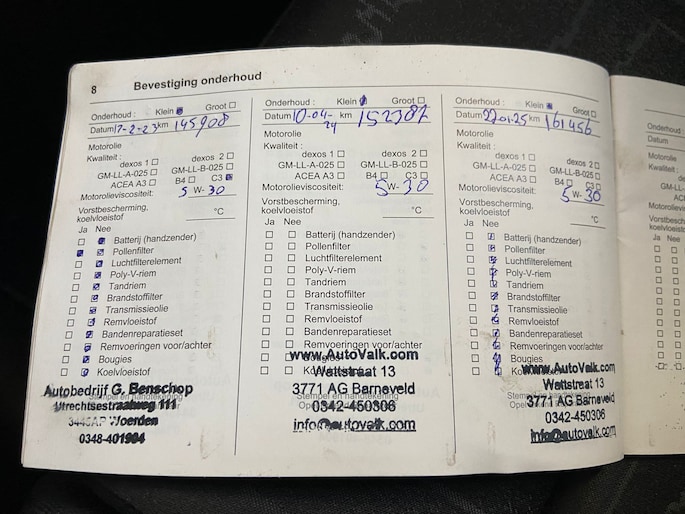 8 Bevestiging onderhoud
Onderhoud : Klein Groot
Datum 17-2-23 km 145908
Motorolie
Kwaliteit :
dexos 1 dexos 2
GM-LL-A-025 GM-LL-B-025
ACEA A3 B4 C3
Motorolieviscositeit: 5 W- 30
Vorstbescherming,
koelvloeistof °C
Ja Nee
Batterij (handzender)
Pollenfilter
Luchtfilterelement
Poly-V-riem
Tandriem
Brandstoffilter
Transmissieolie
Remvloeistof
Bandenreparatieset
Remvoeringen voor/achter
Bougies
Koelvloeistof
Autobedrijf G. Benschop
Utrechtsestraatweg 111
Woerden
0348-401904
Onderhoud : Klein Groot
Datum 10-04-24 km 152387
Motorolie
Kwaliteit :
dexos 1 dexos 2
GM-LL-A-025 GM-LL-B-025
ACEA A3 B4 C3
Motorolieviscositeit: 5 W- 30
Vorstbescherming,
koelvloeistof °C
Ja Nee
Batterij (handzender)
Pollenfilter
Luchtfilterelement
Poly-V-riem
Tandriem
Brandstoffilter
Transmissieolie
Remvloeistof
Bandenreparatieset
Remvoeringen voor/achter
www.AutoValk.com
Wattstraat 13
3771 AG Barneveld
0342-450306
info@autovalk.com
Onderhoud : Klein Groot
Datum 22-01-25 km 161456
Motorolie
Kwaliteit :
dexos 1 dexos 2
GM-LL-A-025 GM-LL-B-025
ACEA A3 B4 C3
Motorolieviscositeit: 5 W- 30
Vorstbescherming,
koelvloeistof °C
Ja Nee
Batterij (handzender)
Pollenfilter
Luchtfilterelement
Poly-V-riem
Tandriem
Brandstoffilter
Transmissieolie
Remvloeistof
Bandenreparatieset
Remvoeringen voor/achter
Bougies
www.AutoValk.com
Wattstraat 13
3771 AG Barneveld
0342-450306
info@autovalk.com
Onderhoud
Datum
Motorolie
Kwaliteit
Ja Nee